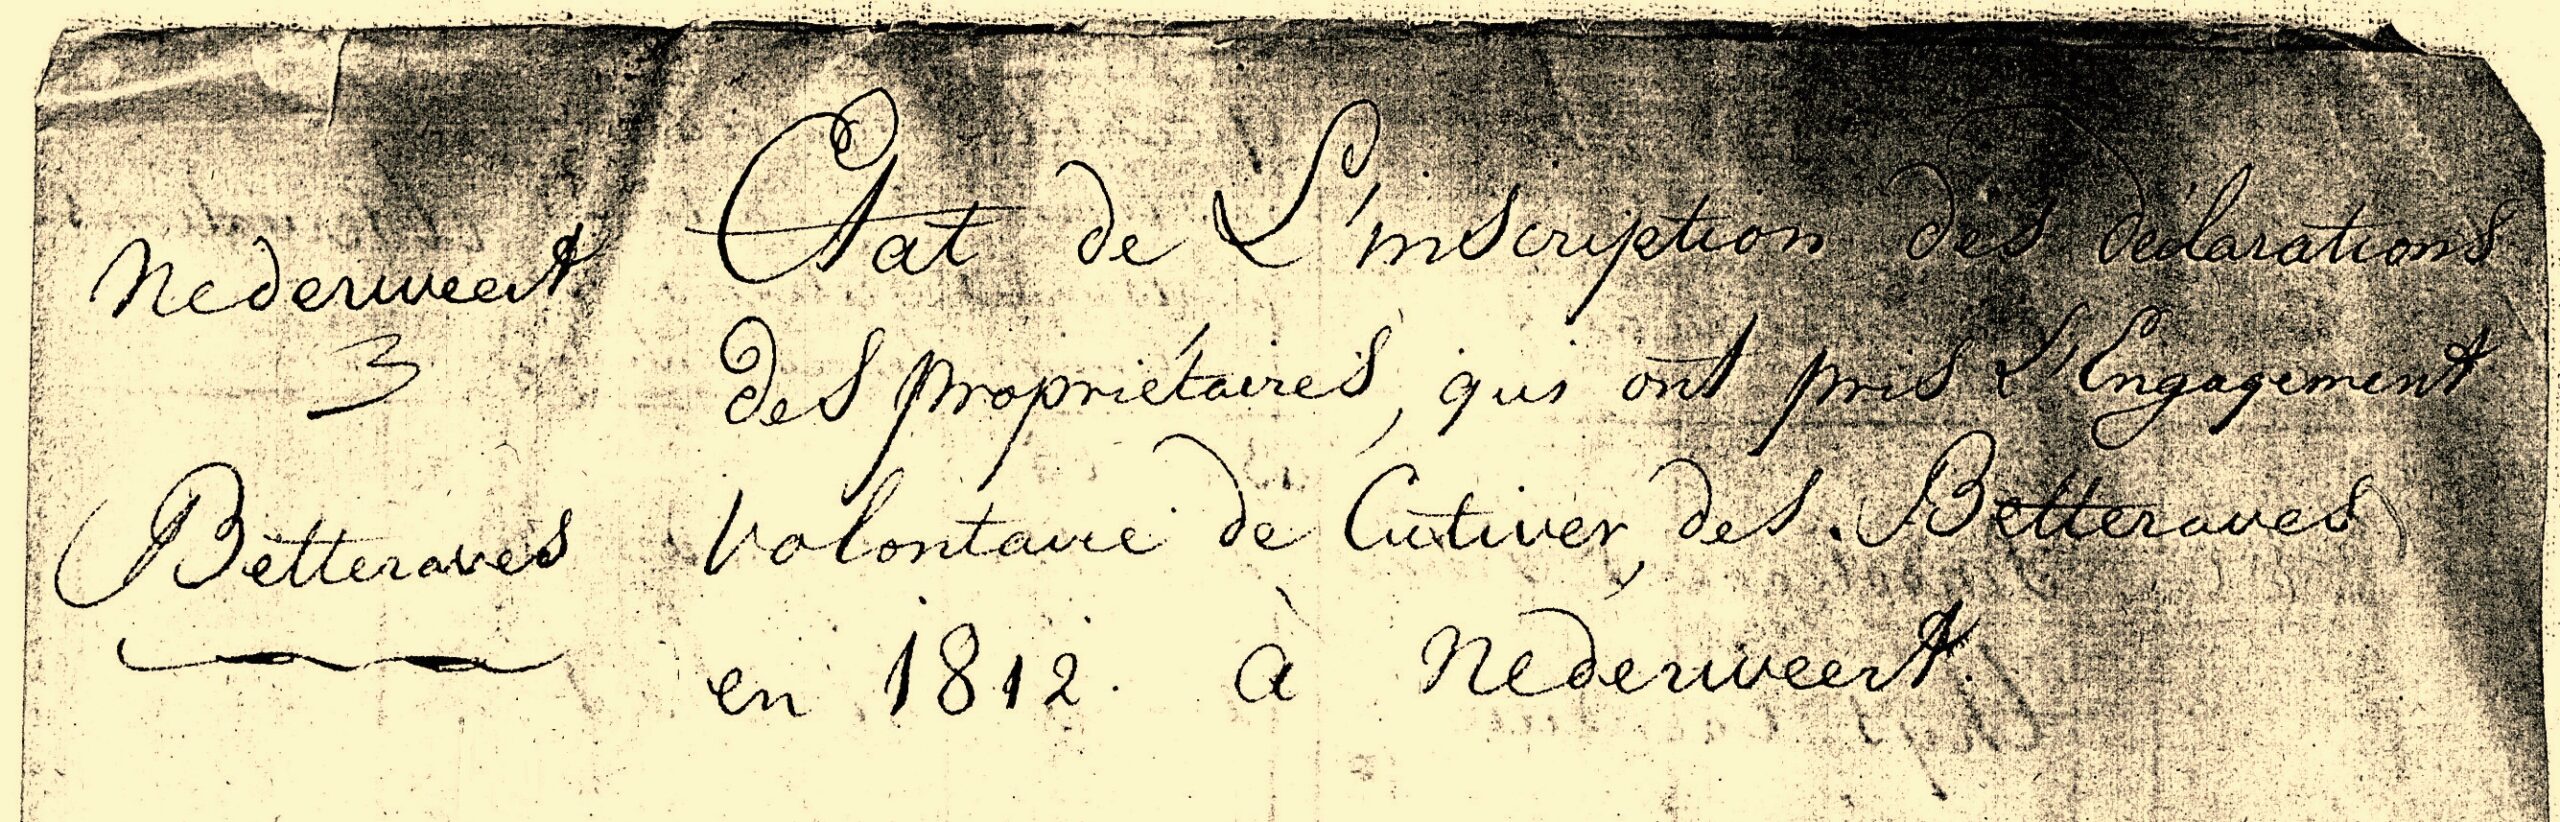 Nederweert
3
Betteraves
Etat de L'inscription des déclarations
des propriétaires, qui ont pris L'Engagement
volontaire de Cutiver, des Betteraves
en 1812. à Nederweert.